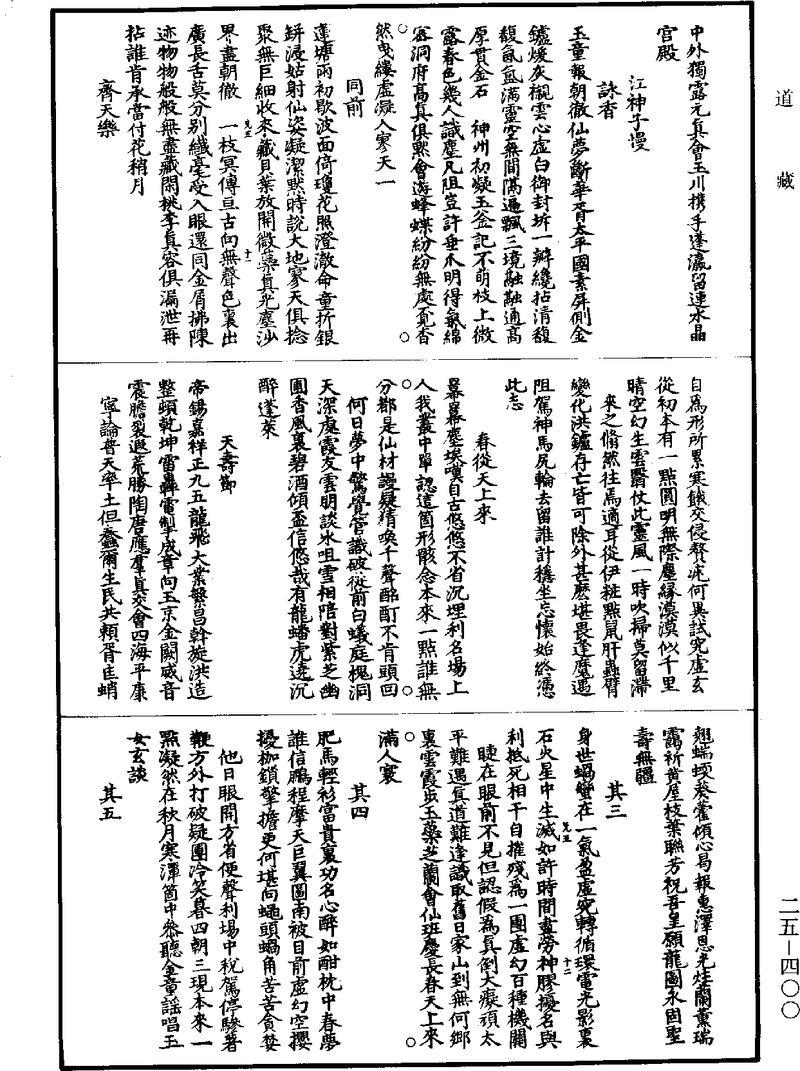 道藏
中外獨露元真會玉川携手蓬瀛留連水晶
官殿
江神子慢
詠香
玉童報朝徹仙夢斷華胥太平國素屏側金
鑪煖灰襯雲心虛白御封坼一瓣纔拈清馥
馥氤氳滿靈空無間隔遍飄三境融融通高
厚貫金石 神州初凝玉釜記不萌枝上微
露春色幾人識塵凡阻豈許垂木明得氣綿
客洞府高真俱黙會遊蜂蝶紛紛無處覓香
然曳縷虛凝人寒天一
同前
蓮塘雨初歇波面倚瓊花照澄澈命童折銀
缾浸姑射仙姿凝潔黙時說大地寥天俱捻
聚無巨細收來藏貝葉放開微蘂真充塵沙
界盡朝徹 一枝冥傳亘古向無聲色裏出
廣長舌莫分别纖毫受入眼還同金屑拂陳
迹物物般般無盡藏閑桃李真容俱漏泄再
拈誰肯承當付花稍月
齊天樂
自為形所累寒餓交侵贅疣何異試究虛玄
從初本有一點圓明無際塵緣漠漠似千里
晴空幻生雲翳仗此靈風一時吹掃莫留滯
來之脩然往焉適耳從伊粧點鼠肝蟲臂
變化洪鑪存亡皆可除外甚麽堪畏逢魔遇
阻駕神馬尻輪去留誰計穩坐忘懷始終憑
此志
春從天上來
冪冪塵埃嘆自古悠悠不省沉埋利名場上
人我叢中單認這箇形骸念本來一點誰無
分都是仙材謾凝猜喚千聲酩酊不肯頭回
何日夢中驚覺管識破從前白蟻庭槐洞
天深處霞友雲朋談冰咀雪相陪對紫芝幽
圃香風裏碧酒傾盃信悠哉有龍蟠虎遶沉
醉蓬萊
天壽節
帝錫嘉祥正九五龍飛大業繁昌斡旋洪造
整頓乾坤雷轟電掣成章向玉京金闕威音
震膽裂遐荒勝陶唐應羣真交會四海平康
寧論普天率土但蠢爾生民共頼胥匡蛸
翹蝡蝡葵藿傾心曷報惠澤恩光炷蘭薰瑞
靄祈黄屋枝葉聯芳祝吾皇願龍圖永固聖
壽無疆
其三
身世蝸蠻在一氣盈虛宛轉循環電光影裏
石火星中生滅如許時間盡勞神膠擾名與
利抵死相干自摧殘為一團虛幻百種機關
睫在眼前不見但認假為真倒大癡頑太
平難遇真道難逢識取舊日家山到無何鄉
裏雲霞嵌玉蘂芝蘭會仙班慶長春天上來
滿人寰
其四
肥馬輕衫富貴裏功名心醉如酣枕中春夢
誰信鵬程摩天巨翼圖南被目前虛幻空攖
擾枷鎖擎擔更何堪向蠅頭蝸角苦苦貪婪
他日眼開方省便聲利場中税駕停驂著
鞭方外打破疑團冷笑暮四朝三現本來一
點凝然在秋月寒潭箇中叅聽金童謡唱玉
女玄談
其五
二五—四〇〇